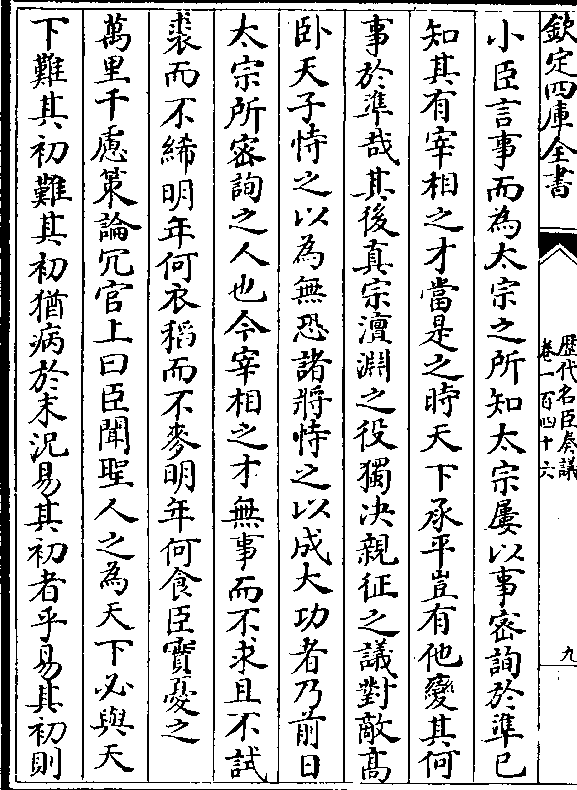 欽定四庫全書
歴代名臣奏議
卷一百四十六
九
小臣言事而為太宗之所知太宗屢以事密詢於準已
知其有宰相之才當是之時天下承平豈有他變其何
事於準哉其後真宗澶淵之役獨決親征之議對敵髙
卧天子恃之以為無恐諸將恃之以成大功者乃前日
太宗所密詢之人也今宰相之才無事而不求且不試
裘而不絺明年何衣稻而不麥明年何食臣實憂之
萬里千慮策論冗官上曰臣聞聖人之為天下必與天
下難其初難其初猶病於末況易其初者乎易其初則